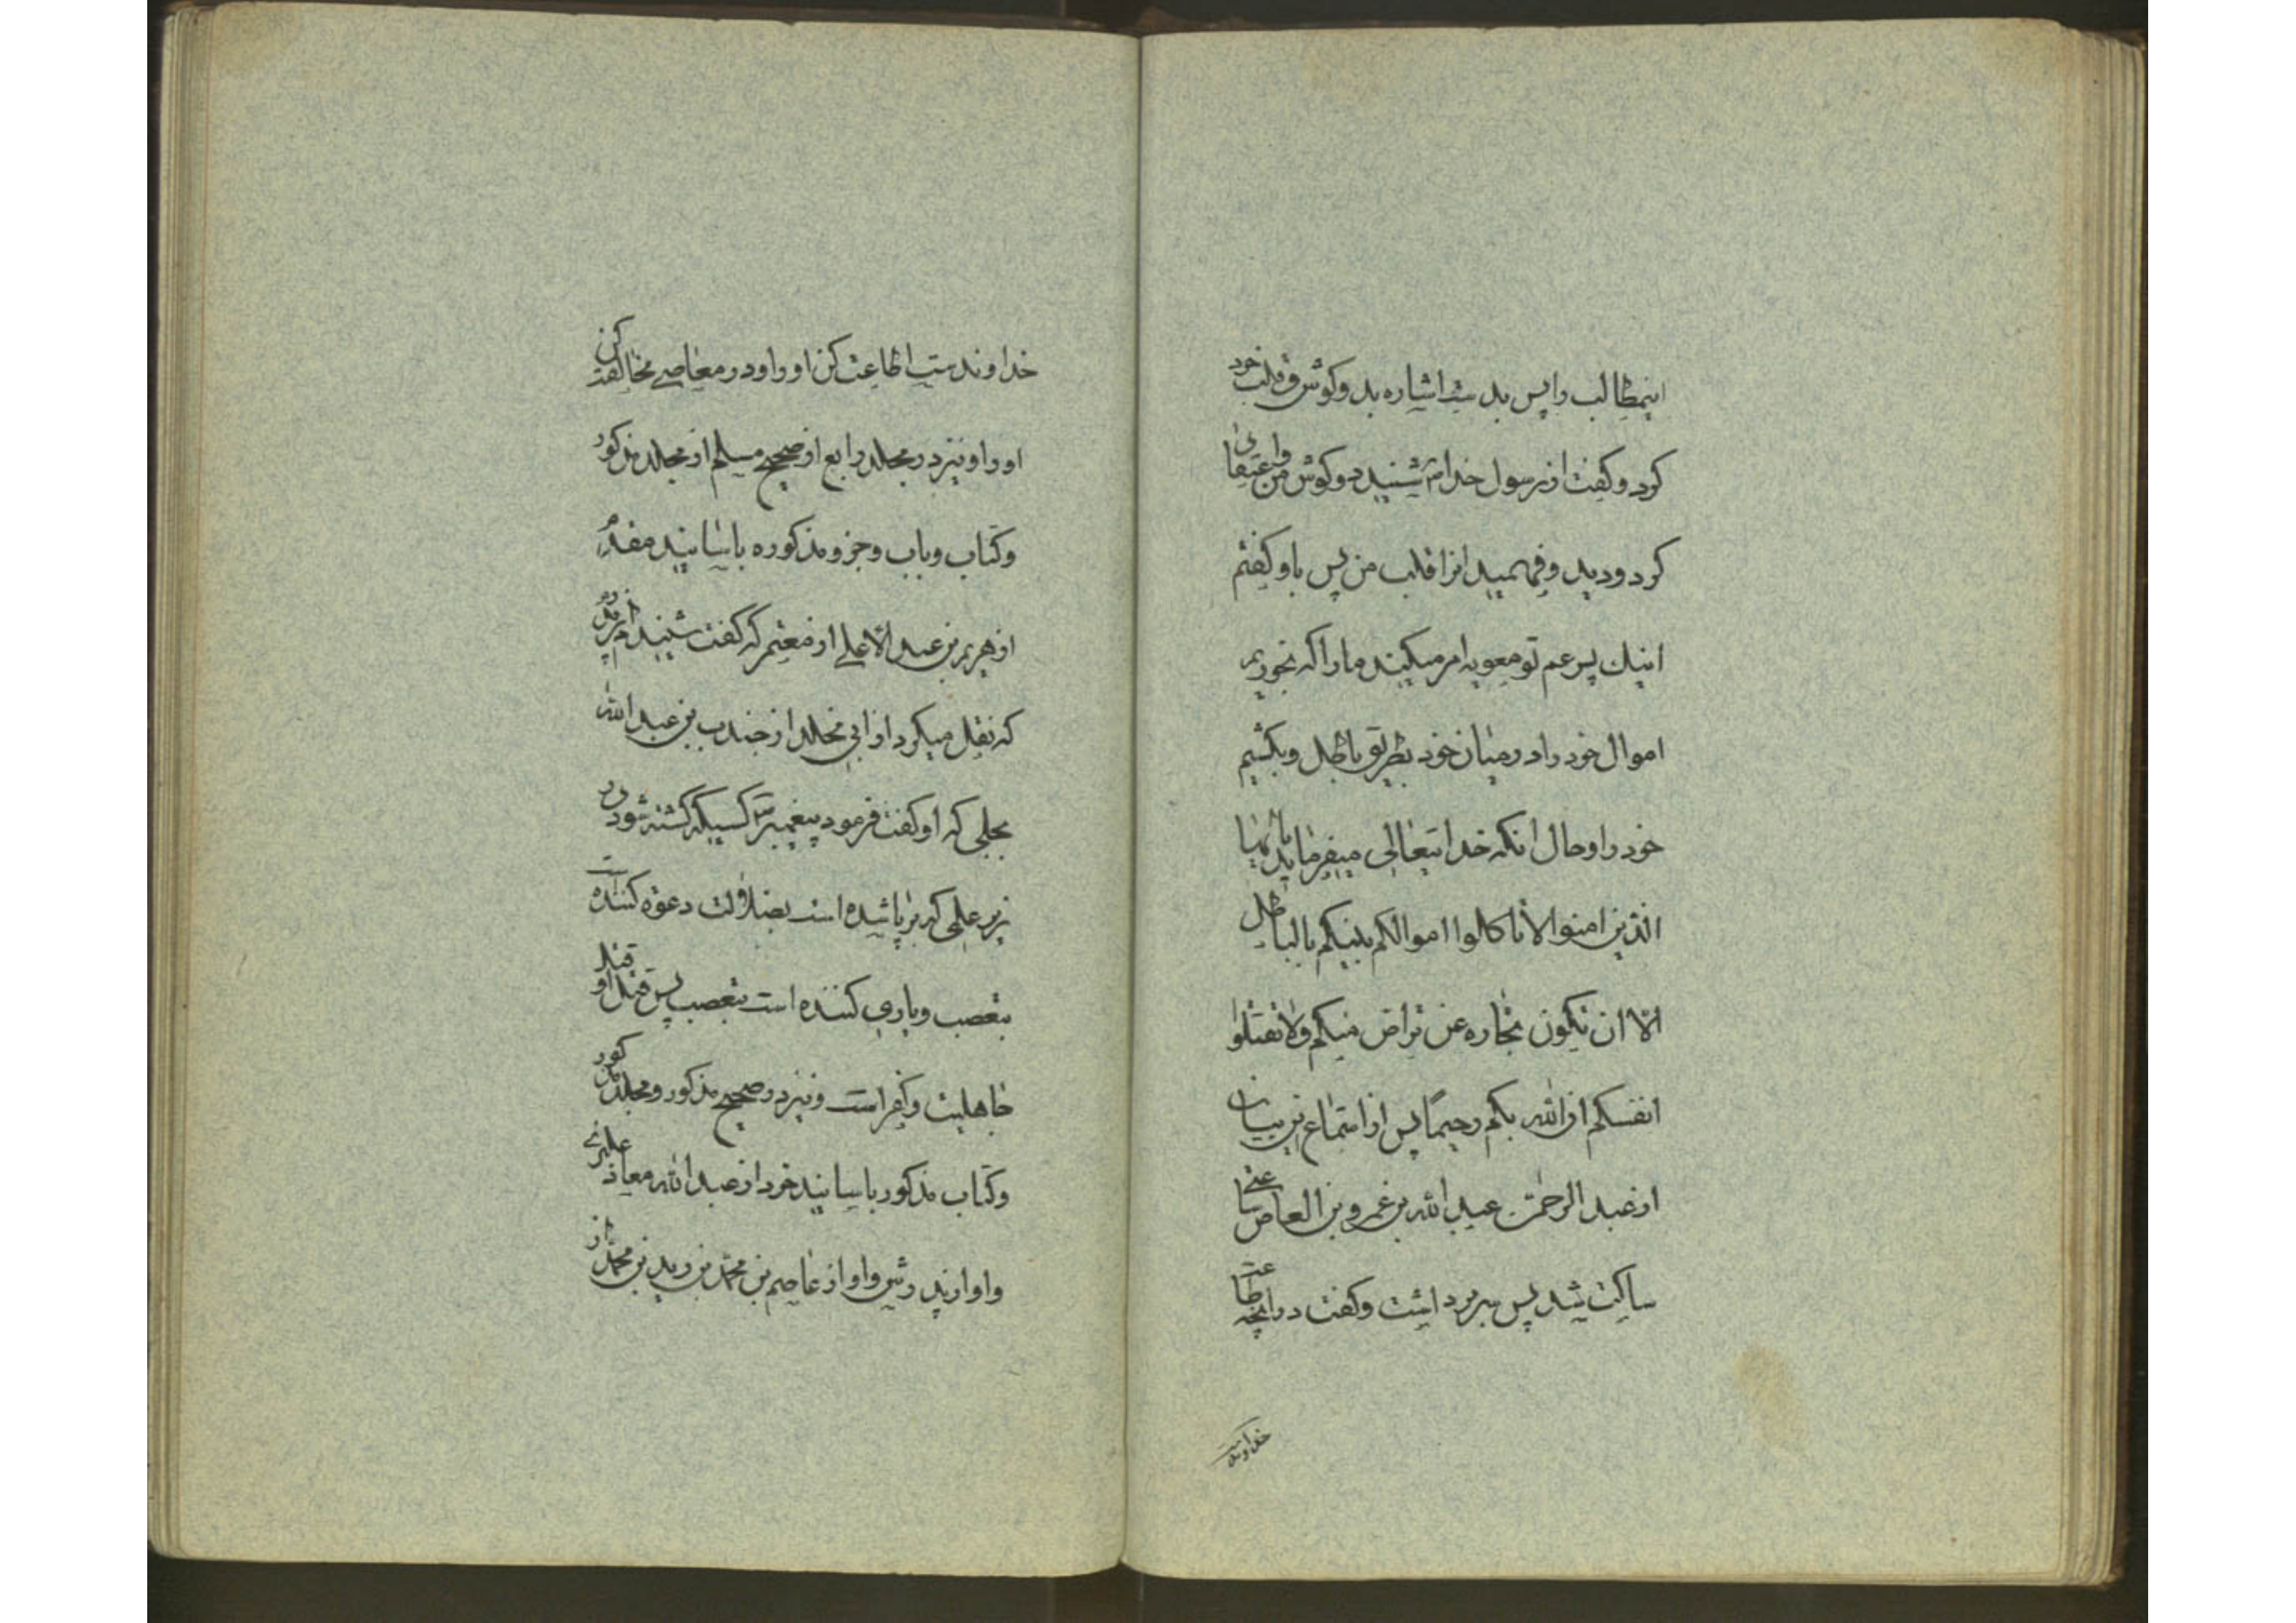 اینمطالب را پس بدست اشاره بدو گوش و قلب خود
کرد و گفت از رسول خدا ص شنید دو گوش من واعتقای
کرد و دید و فهمید انرا قلب من پس باو گفتم
اینك پسر عم تو معویه امر میکیند مارا که بخوریم
اموال خود را در میان خود بطریق باطل و بکشیم
خود را و حال انکه خدایتعالی میفرماید یا ایها
الذین امنوا لا تاکلوا اموالکم بینکم بالباطل
الا ان تکون تجاره عن تراض منکم ولا تقتلوا
انفسکم ان الله بکم رحیماً پس از استماع این بیان
از عبد الرحمن عبد الله بن عمرو بن العاص ساعتی
ساکت شد پس سر برداشت و گفت در انچه طاعت
خداوندست
خداوندست اطاعت کن او را و در معاصی مخالفت کن
او را و نیز در مجلد رابع از صحیح مسلم از مجلد مذکور
و کتاب و باب و جزو مذکوره باسانید
از هریم بن عبد الاعلی از معتمر که گفت شنیدم از پدرم
که نقل میکرد از ابی مخلد از جندب بن عبد الله
بجلی که او گفت فرمود پیغمبر ص کسیکه کشته شود در
زیر علمی که برپا شده است بضلالت دعوة کننده است
بتعصب و یاری کننده است بتعصب پس قتل او قتل
جاهلیت و کفر است و نیز در صحیح مذکور و مجلد مذکور
و کتاب مذکور باسانید خود از عبد الله معاذ علبری
و او از پدرش و او از عاصم بن محمد بن زید بن محمد از